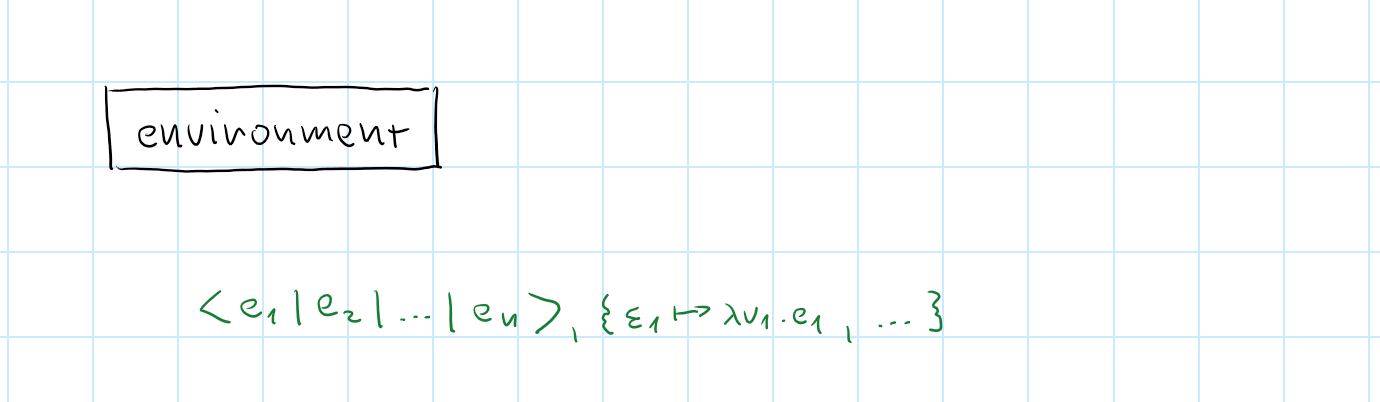 environment
<e₁|e₂|...|eₙ>, {ε₁ ↦ λv₁.e₁, ...}